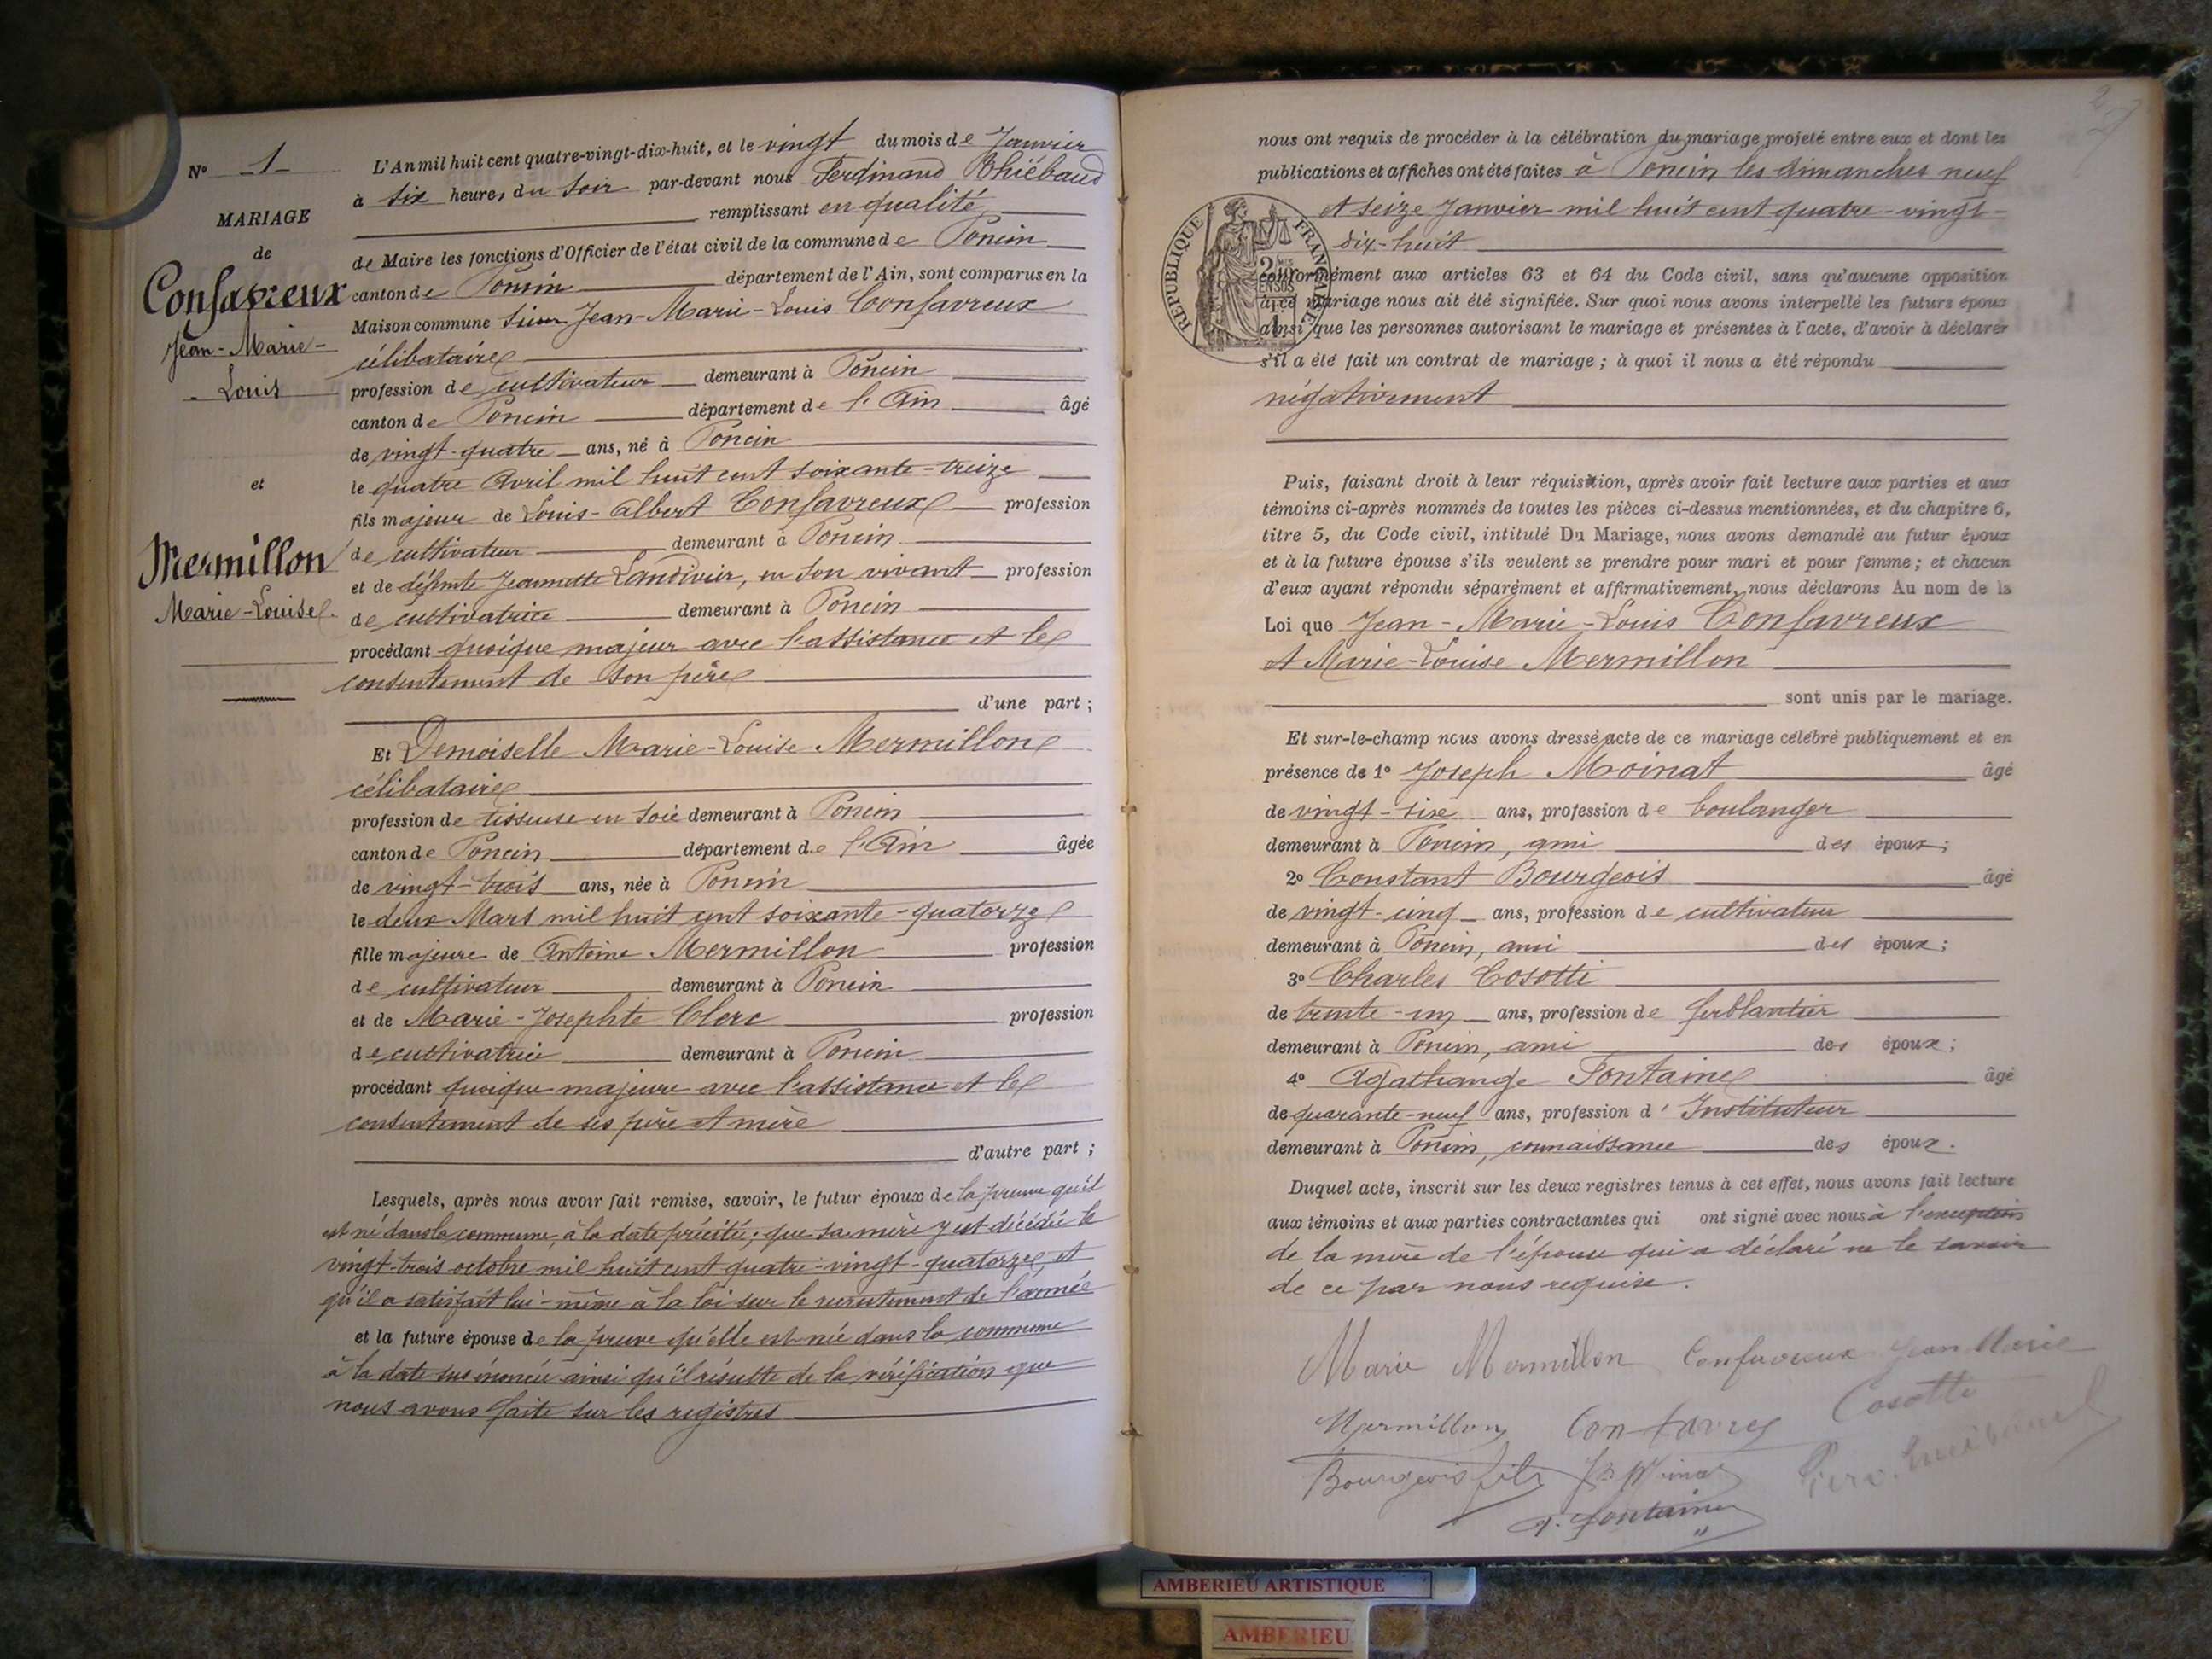 N° 1
MARIAGE
de
Confavreux
Jean-Marie-
Louis
et
Mermillon
Marie-Louise
L'An mil huit cent quatre-vingt-dix-huit, et le vingt du mois de Janvier
à six heures du soir par-devant nous Ferdinand Thiébaud
remplissant en qualité
de Maire les fonctions d'Officier de l'état civil de la commune de Poncin
canton de Poncin département de l'Ain, sont comparus en la
Maison commune Sieur Jean-Marie-Louis Confavreux
célibataire
profession de cultivateur demeurant à Poncin
canton de Poncin département de l'Ain âgé
de vingt-quatre ans, né à Poncin
le quatre Avril mil huit cent soixante-treize
fils majeur de Louis-Albert Confavreux profession
de cultivateur demeurant à Poncin
et de défunte Jeannette Landivier, en son vivant profession
de cultivatrice demeurant à Poncin
procédant quoique majeur avec l'assistance et le
consentement de son père
d'une part ;
Et Demoiselle Marie-Louise Mermillon
célibataire
profession de tisseuse en soie demeurant à Poncin
canton de Poncin département de l'Ain âgée
de vingt-trois ans, née à Poncin
le deux Mars mil huit cent soixante-quatorze
fille majeure de Antoine Mermillon profession
de cultivateur demeurant à Poncin
et de Marie-Josephte Clerc profession
de cultivatrice demeurant à Poncin
procédant quoique majeure avec l'assistance et le
consentement de ses père et mère
d'autre part ;
Lesquels, après nous avoir fait remise, savoir, le futur époux de la preuve qu'il
est né dans la commune, à la date précitée ; que sa mère y est décédée le
vingt-trois octobre mil huit cent quatre-vingt-quatorze, et
qu'il a satisfait lui-même à la loi sur le recrutement de l'armée
et la future épouse de la preuve qu'elle est née dans la commune
à la date sus énoncée ainsi qu'il résulte de la vérification que
nous avons faite sur les registres
nous ont requis de procéder à la célébration du mariage projeté entre eux et dont les
publications et affiches ont été faites à Poncin les dimanches neuf
et seize Janvier mil huit cent quatre-vingt-
dix-huit
RÉPUBLIQUE FRANÇAISE
conformément aux articles 63 et 64 du Code civil, sans qu'aucune opposition
à ce mariage nous ait été signifiée. Sur quoi nous avons interpellé les futurs époux
ainsi que les personnes autorisant le mariage et présentes à l'acte, d'avoir à déclarer
s'il a été fait un contrat de mariage ; à quoi il nous a été répondu
négativement
Puis, faisant droit à leur réquisition, après avoir fait lecture aux parties et aux
témoins ci-après nommés de toutes les pièces ci-dessus mentionnées, et du chapitre 6,
titre 5, du Code civil, intitulé Du Mariage, nous avons demandé au futur époux
et à la future épouse s'ils veulent se prendre pour mari et pour femme ; et chacun
d'eux ayant répondu séparément et affirmativement, nous déclarons Au nom de la
Loi que Jean-Marie-Louis Confavreux
et Marie-Louise Mermillon
sont unis par le mariage.
Et sur-le-champ nous avons dressé acte de ce mariage célébré publiquement et en
présence de 1° Joseph Moinat âgé
de vingt-six ans, profession de boulanger
demeurant à Poncin, ami des époux ;
2° Constant Bourgeois âgé
de vingt-cinq ans, profession de cultivateur
demeurant à Poncin, ami des époux ;
3° Charles Cosotti
de trente-un ans, profession de ferblantier
demeurant à Poncin, ami des époux ;
4° Agathange Fontaine âgé
de quarante-neuf ans, profession d'Instituteur
demeurant à Poncin, connaissance des époux.
Duquel acte, inscrit sur les deux registres tenus à cet effet, nous avons fait lecture
aux témoins et aux parties contractantes qui ont signé avec nous à l'exception
de la mère de l'épouse qui a déclaré ne le savoir
de ce par nous requise.
Marie Mermillon Confavreux Jean Marie
Mermillon Cosotti
Bourgeois fils
A. Fontaine
AMBERIEU ARTISTIQUE
AMBERIEU